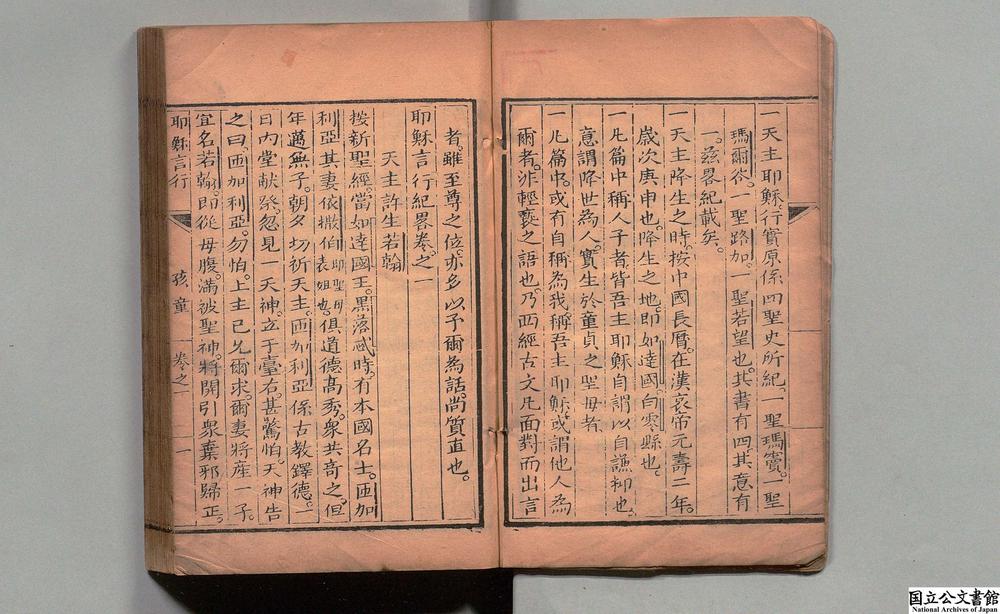 一天主耶穌行實原係四聖史所紀一聖瑪竇。一聖
瑪爾谷。一聖路加。一聖若望也。其書有四其意有
一。茲畧紀載矣。
一天主降生之時。按中國長曆。在漢哀帝元壽二年。
歲次庚申也。降生之地。即如達國白零縣也。
一凡篇中稱人子者皆吾主耶穌自謂以自謙抑也
意謂降世為人。實生於童貞之聖母者
一凡篇中。或有自稱為我。稱吾主耶穌。或謂他人為
爾者。非輕褻之語也。乃西經古文凡面對而出言
者。雖至尊之位。亦多以予爾為話。尚質直也。
耶穌言行紀畧卷之一
天主許生若翰
按新聖經。當如達國王。黑落忒時。有本國名士。匝加
利亞其妻依撒伯耶聖母表姐也。俱道德高秀。衆共奇之。但
年邁無子。朝夕切祈天主。匝加利亞係古教鐸德。一
日內堂献祭忽見一天神。立于臺右。甚驚怕天神告
之曰。匝加利亞。勿怕。上主已允爾求。爾妻將産一子。
宜名若翰。即從母腹。滿被聖神。將開引衆棄邪歸正。
耶穌言行
孩童
卷之一
一
国立公文書館
National Archives of Japan